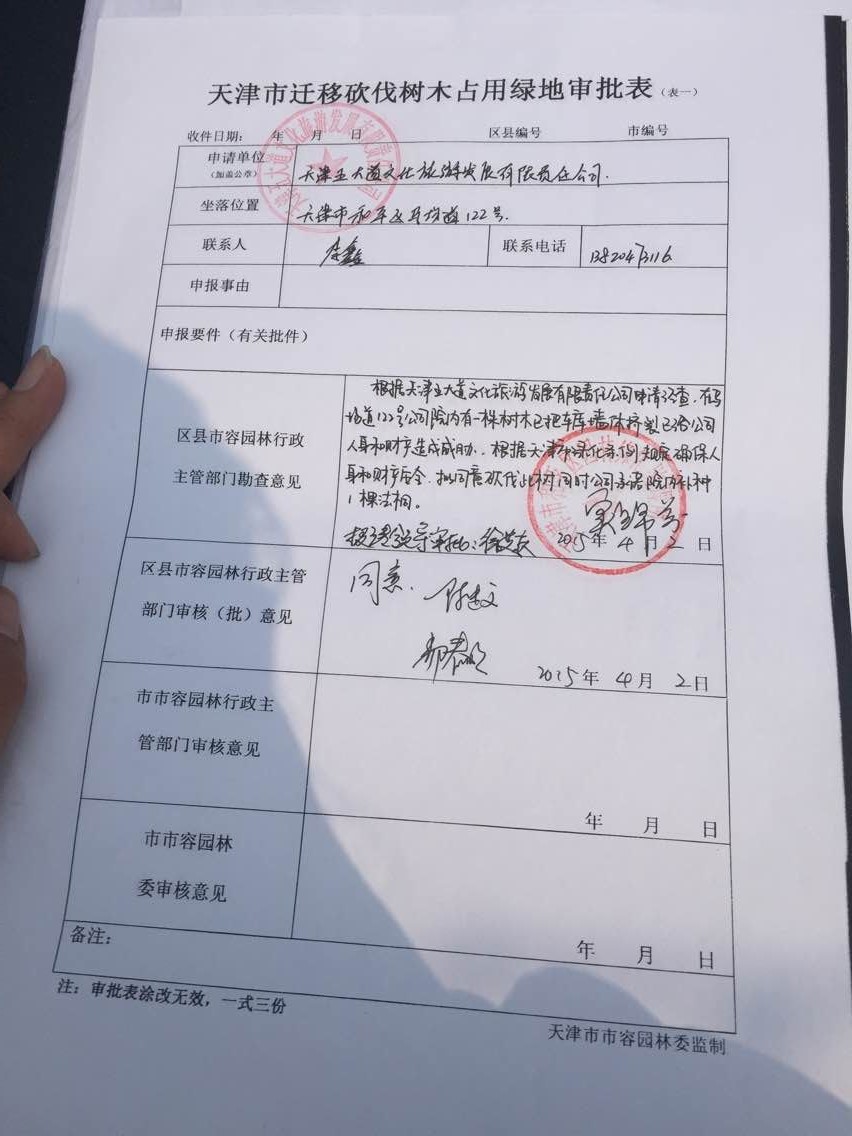 天津市迁移砍伐树木占用绿地审批表（表一）
收件日期： 年 月 日 区县编号 市编号
申请单位
（加盖公章）
天津五大道文化旅游发展有限责任公司.
坐落位置
天津市和平区马场道122号.
联系人
李鑫
联系电话
13820473116
申报事由
申报要件（有关批件）
区县市容园林行政
主管部门勘查意见
根据天津五大道文化旅游发展有限责任公司申请经查，在马
场道122号公司院内有一株树木已把车库墙体挤裂已给公司
人身和财产造成威胁. 根据天津市绿化条例规定确保人
身和财产安全. 拟同意砍伐此树同时公司承诺院内补种
1棵法桐。
2015年4月2日
区县市容园林行政主管
部门审核（批）意见
同意.
2015年 4月 2日
市市容园林行政主
管部门审核意见
年 月 日
市市容园林
委审核意见
年 月 日
备注：
注：审批表涂改无效，一式三份
天津市市容园林委监制